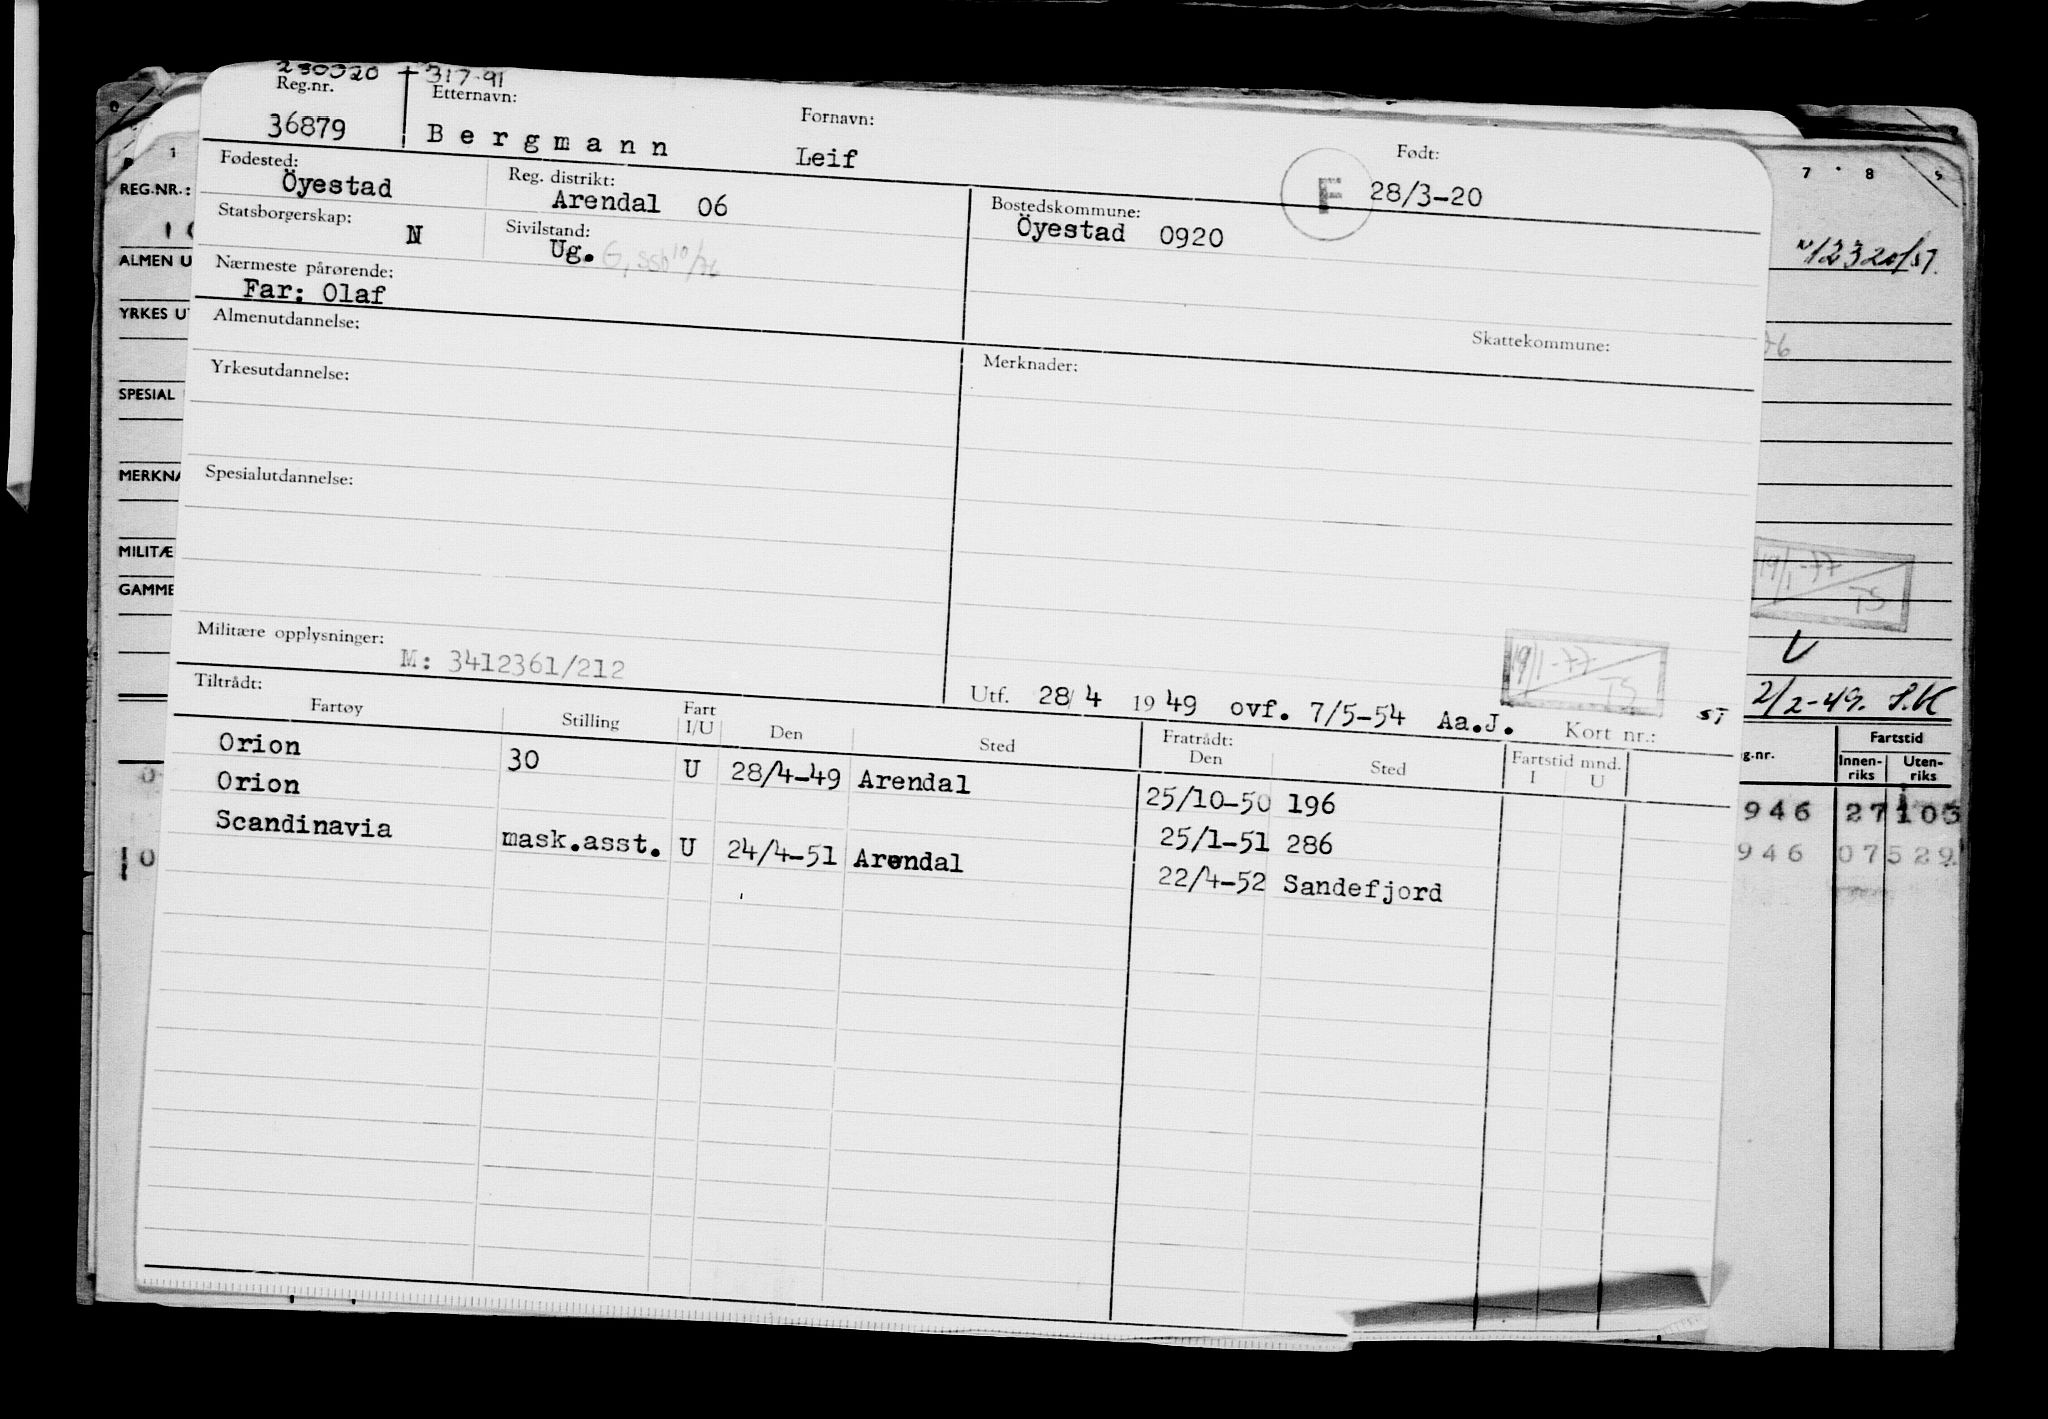 280320 + 317-91
Reg.nr. Etternavn: Fornavn: Født:
36879 Bergmann Leif F 28/3-20
Fødested: Reg. distrikt: Bostedskommune:
Öyestad Arendal 06 Öyestad 0920
Statsborgerskap: Sivilstand:
N Ug. G, ssb 10/76
Nærmeste pårørende:
Far: Olaf
Almenutdannelse: Skattekommune:
Yrkesutdannelse: Merknader:
Spesialutdannelse:
Militære opplysninger:
M: 3412361/212
19/1-77 TS
Utf. 28/4 1949 ovf. 7/5-54 Aa.J. Kort nr.:
Tiltrådt: Fratrådt:
Fartøy Stilling Fart I/U Den Sted Den Sted Fartstid mnd. I U
Orion 30 U 28/4-49 Arendal 25/10-50 196
Orion 25/1-51 286
Scandinavia mask.asst. U 24/4-51 Arendal 22/4-52 Sandefjord
1
REG.NR.:
ALMEN U
YRKES UT
SPESIAL
MERKNA
MILITÆ
GAMME
7 8 9
N12320/57.
76
19/1-77
TS
2/2-49. S.K
g.nr. Fartstid
Innen-riks Uten-riks
946 27 103
946 07 529